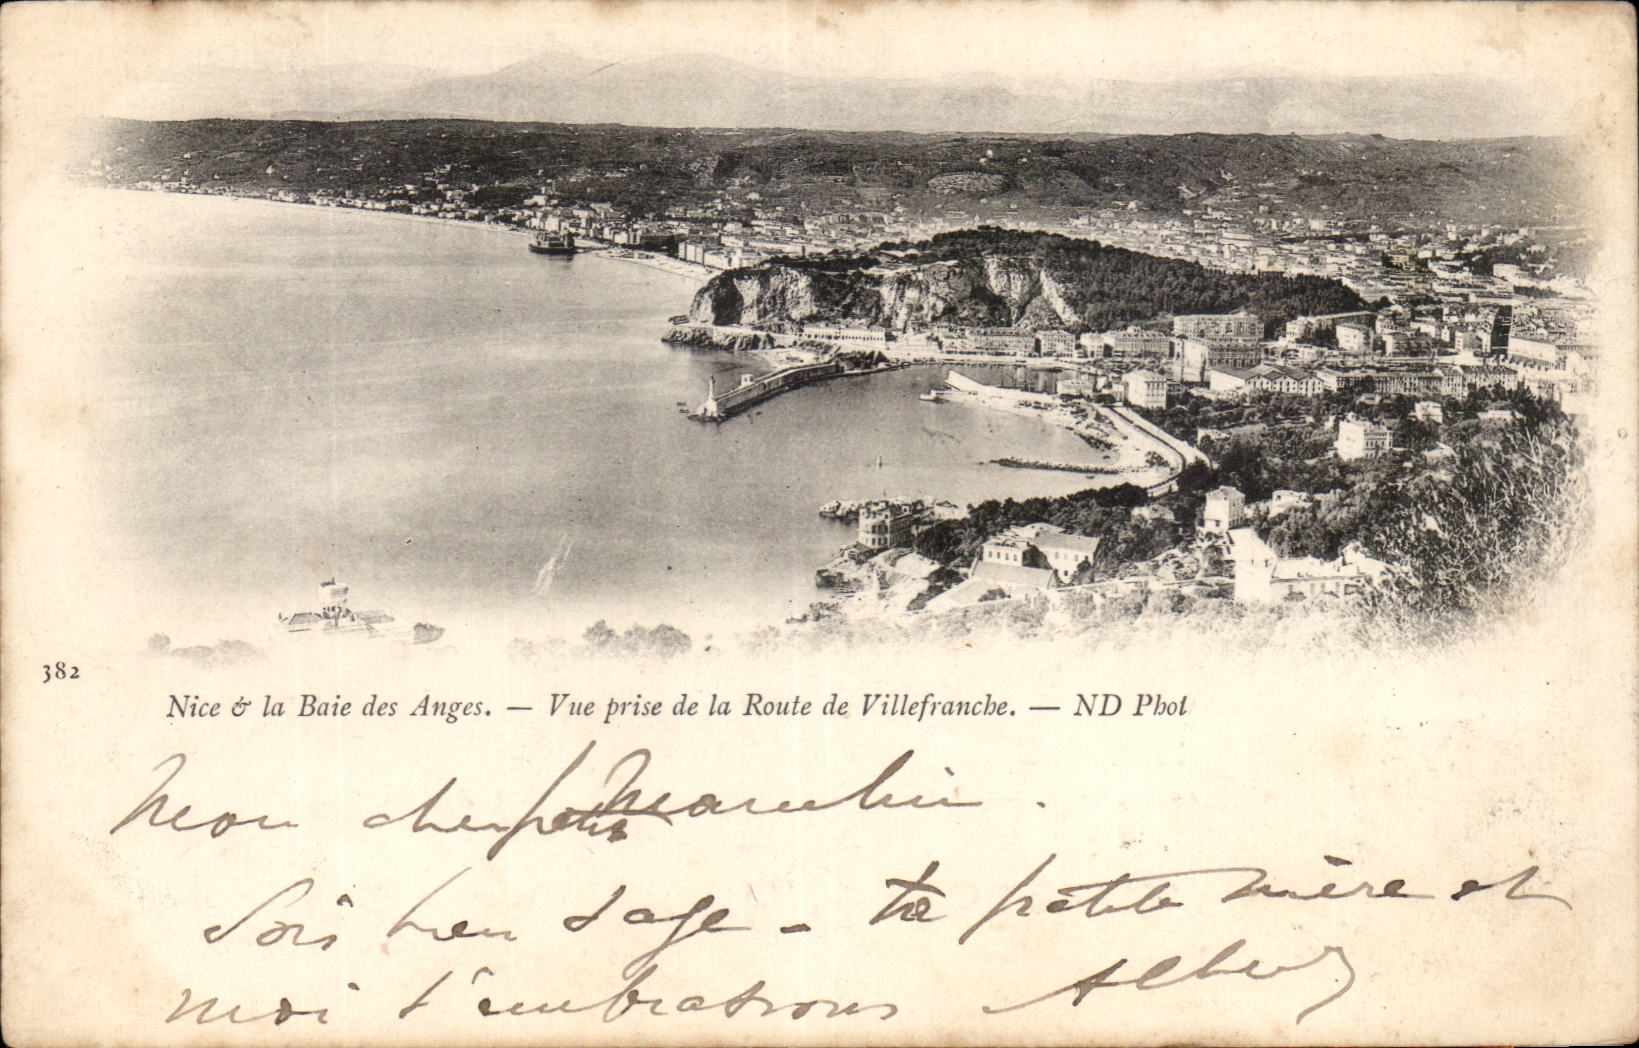 382
Nice & la Baie des Anges. — Vue prise de la Route de Villefranche. — ND Phot
Mon cher petit
Sois bien sage - ta petite mère et
moi t'embrassons Albert